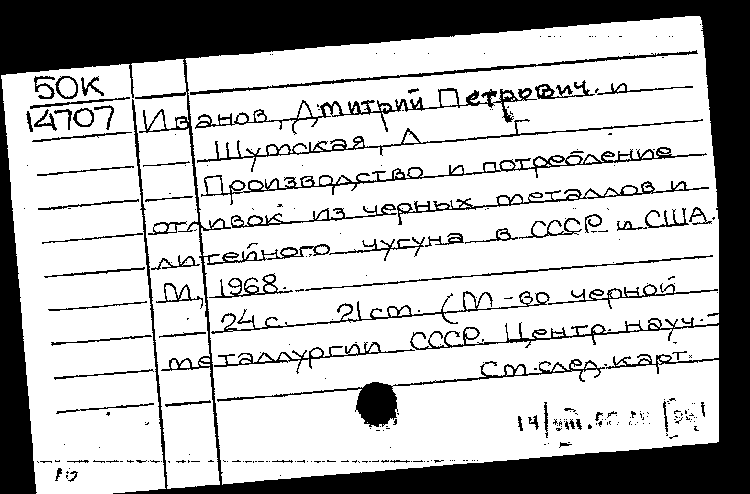 50К
14707
Иванов, Дмитрий Петрович. и
Шутская, Л Г
Производство и потребление
отливок из черных металлов и
литейного чугуна в СССР и США.
М., 1968.
24 с. 21 cm. (М-во черной
металлургии СССР. Центр. науч.-
См. след. карт.
14/VIII.
16